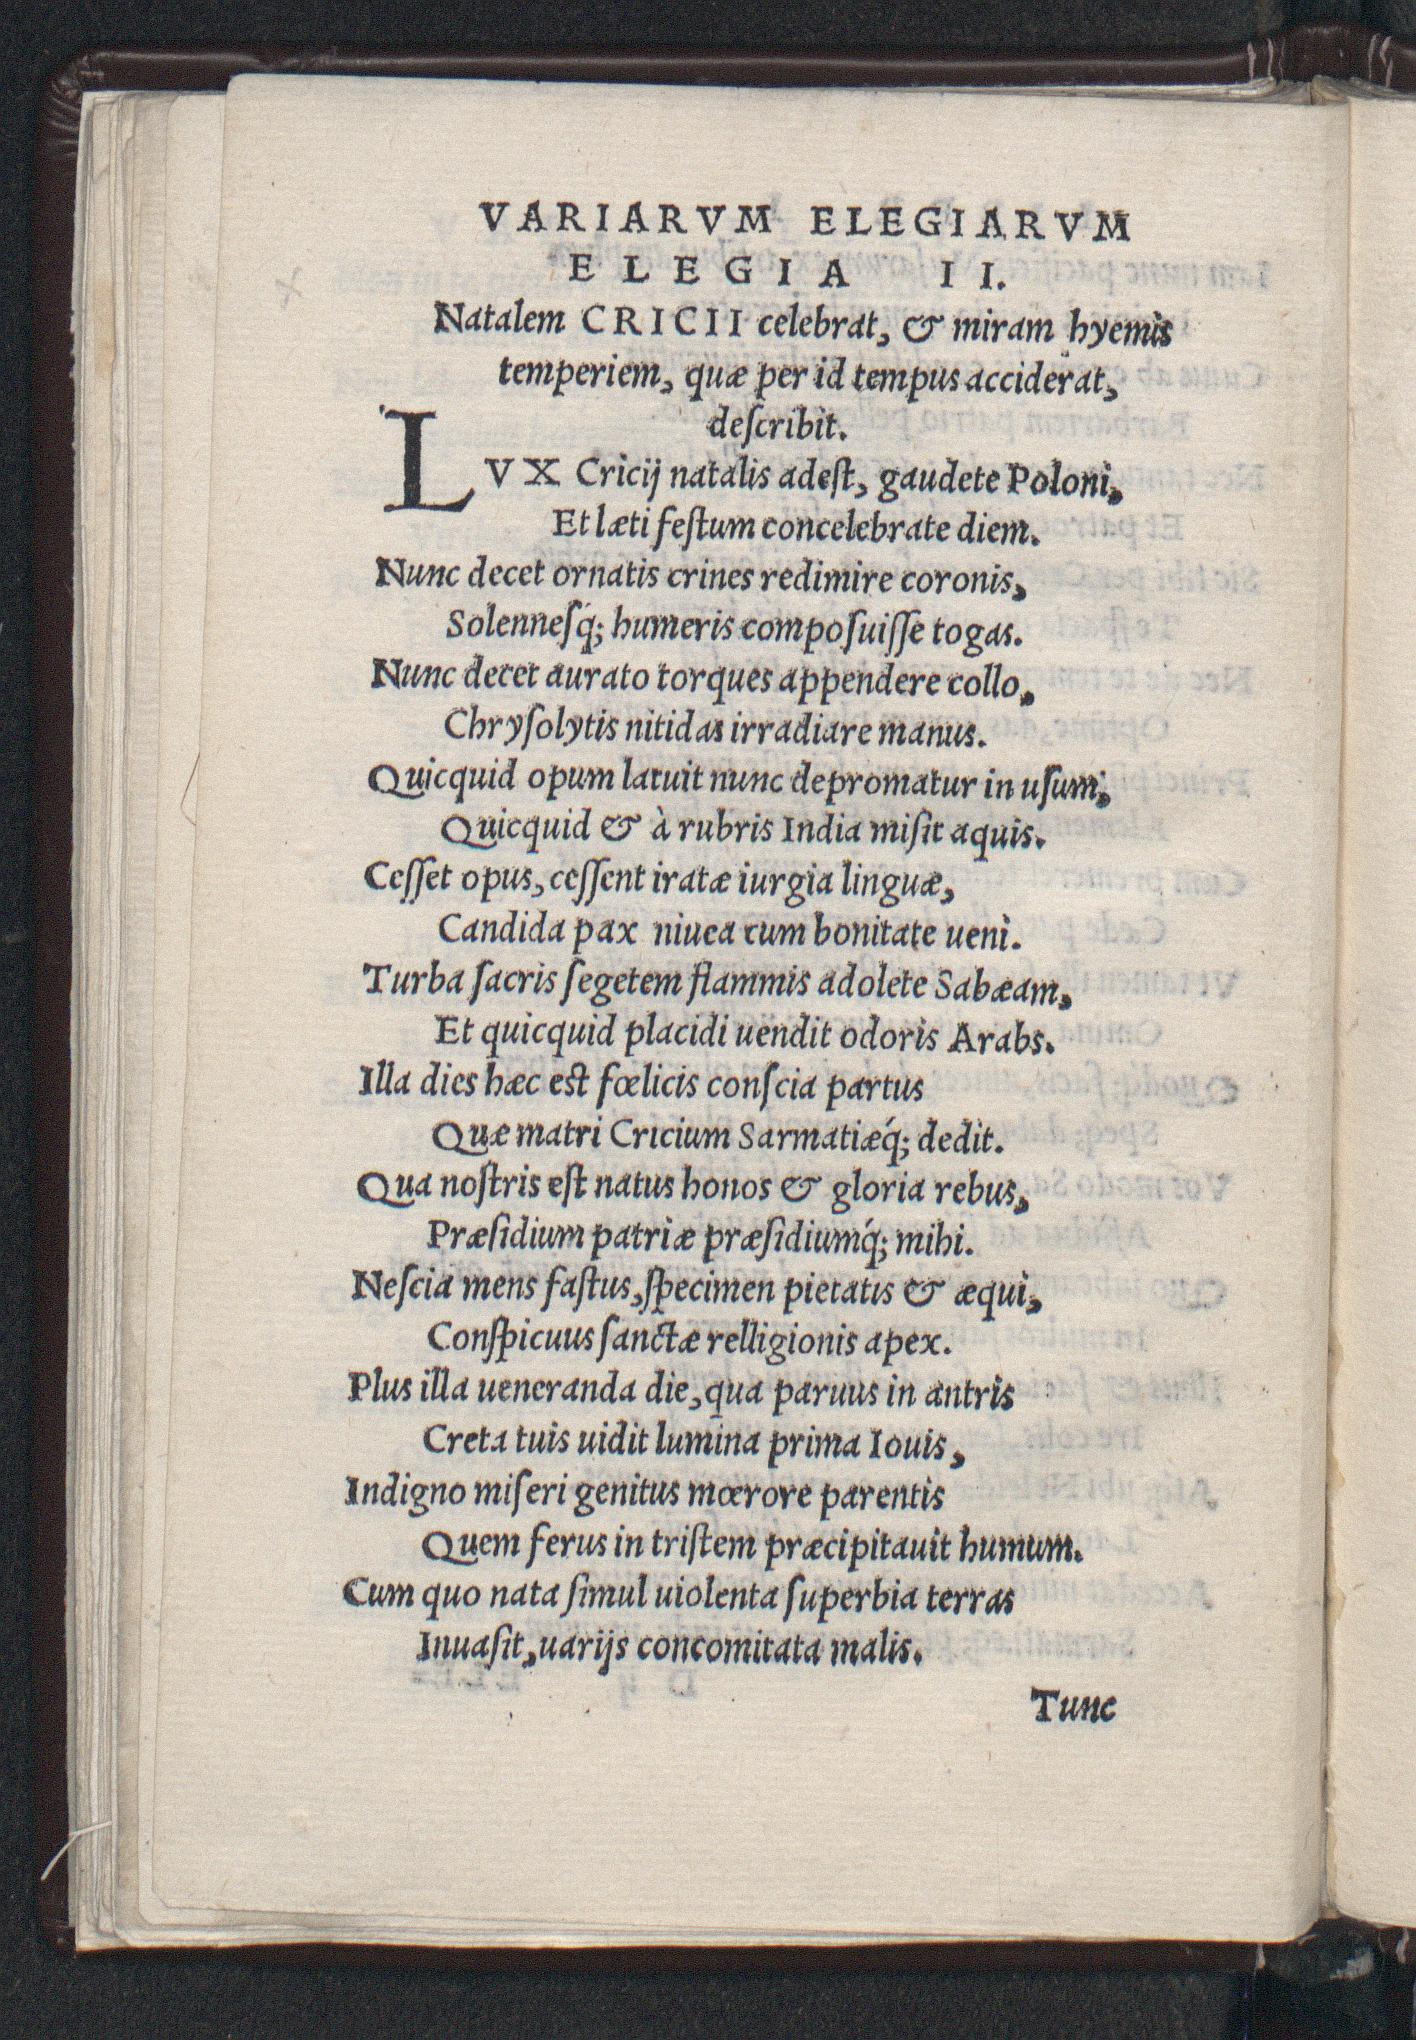 VARIARVM ELEGIARVM
ELEGIA II.
Natalem CRICII celebrat, & miram hyemis
temperiem, quæ per id tempus acciderat,
deſcribit.
LVX Cricij natalis adeſt, gaudete Poloni,
Et læti feſtum concelebrate diem.
Nunc decet ornatis crines redimire coronis,
Solenneſq́; humeris compoſuiſſe togas.
Nunc decet aurato torques appendere collo,
Chryſolytis nitidas irradiare manus.
Quicquid opum latuit nunc depromatur in uſum,
Quicquid & à rubris India miſit aquis.
Ceſſet opus, ceſſent iratæ iurgia linguæ,
Candida pax niuea cum bonitate ueni.
Turba ſacris ſegetem flammis adolete Sabæam,
Et quicquid placidi uendit odoris Arabs.
Illa dies hæc est fœlicis conſcia partus
Quæ matri Cricium Sarmatiæq́; dedit.
Qua noſtris eſt natus honos & gloria rebus,
Præſidium patriæ præſidiumq́; mihi.
Neſcia mens faſtus, ſpecimen pietatis & æqui,
Conſpicuus ſanctæ relligionis apex.
Plus illa ueneranda die, qua paruus in antris
Creta tuis uidit lumina prima Iouis,
Indigno miſeri genitus mœrore parentis
Quem ferus in triſtem præcipitauit humum.
Cum quo nata ſimul uiolenta ſuperbia terras
Inuaſit, uarijs concomitata malis.
Tunc